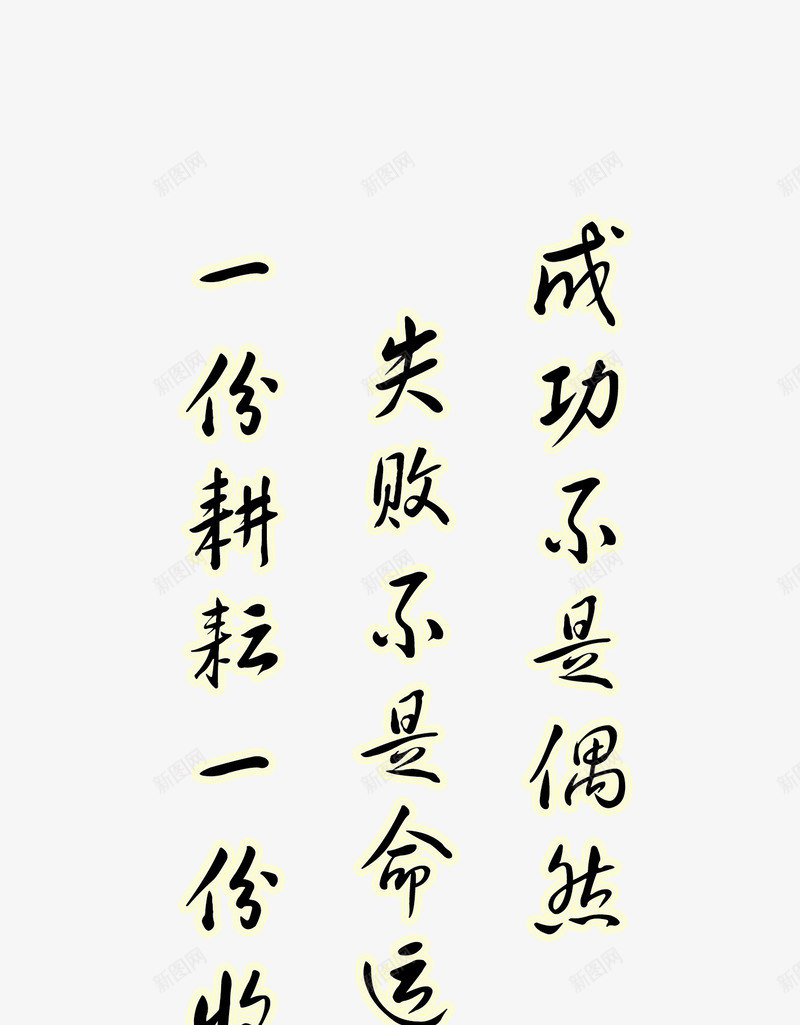 成功不是偶然
失败不是命运
一份耕耘一份收
新图网